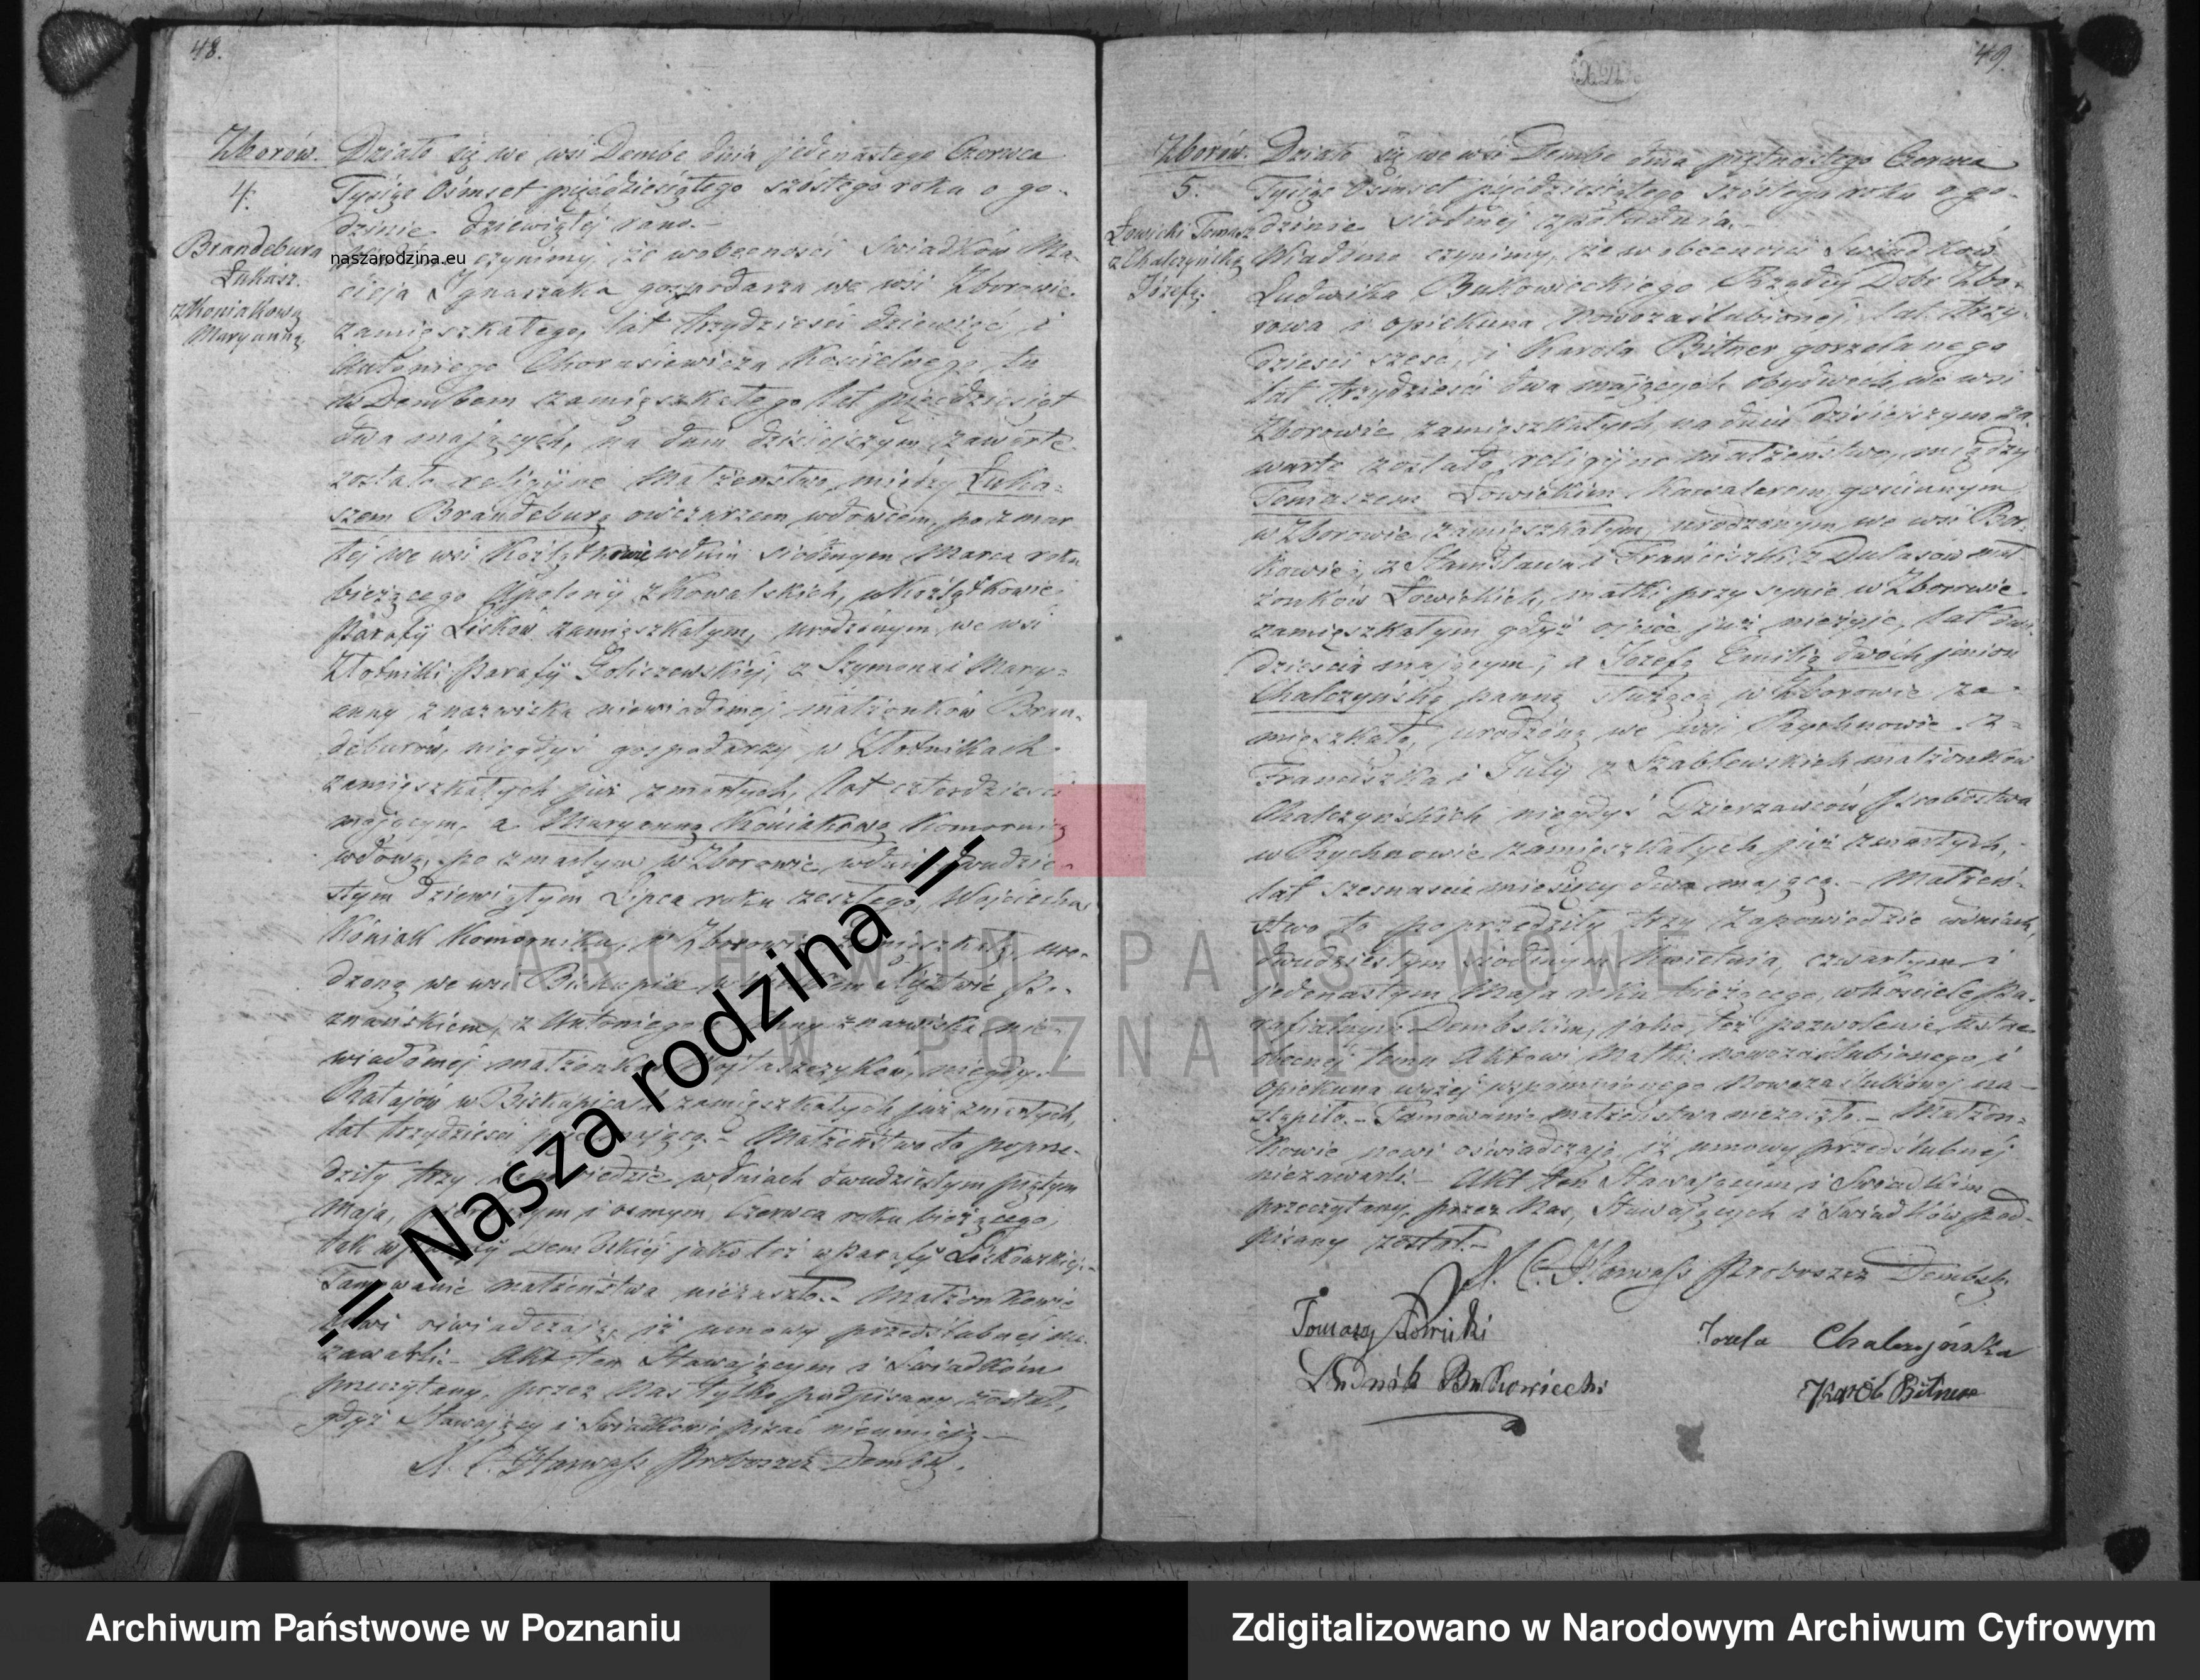 48.
Zborów.
4.
Brandebura
Łukasz.
z Koniakową
Maryanną
Działo się we wsi Dembe dnia jedenastego Czerwca
Tysiąc Ośmset pięćdziesiątego szóstego roku o go-
dzinie dziewiątej rano.-
czynimy, że w obecności Swiadków Ma-
cieja Ignaszaka gospodarza we wsi Zborowie.
zamięszkałego, lat trzydzieści dziewięć, i
Antoniego Chorusiewicza Kościelnego tu
w Dembem zamięszkałego lat pięćdziesiąt
dwa mających, na dniu dzisiejszym zawarte
zostało religijne Małżeństwo, między Łuka-
szem Brandeburą owczarzem wdowcem, po zmar
łej we wsi Koźlątkowie w dniu siódmym Marca roku
bieżącego Apolonij z Kowalskich, w Koźlątkowie
Parafij Lisków zamięszkałym, urodzonym we wsi
Złotniki Parafij Goliszewskiej, z Szymona i Mary-
anny z nazwiska niewiadomej małżonków Bran-
deburów, niegdyś gospodarzy w Złotnikach
zamięszkałych już zmarłych, lat czterdzieści
mającym, a Maryanną Koniakową Komornicą
wdową, po zmarłym w Zborowie w dniu dwudzie-
stym dziewiątym Lipca roku zeszłego, Wojciechu
Koniak Komorniku, w Zborowie zamięszkałą, uro-
dzoną we wsi Biskupice w Wielkiem Xięztwie Po-
znańskiem, z Antoniego z nazwiska nie-
wiadomej małżonków niegdyś
Ratajów w Biskupicach zamięszkałych już zmarłych,
lat trzydzieści mającą.- Małżeństwo to poprze-
dziły trzy zapowiedzie w dniach dwudziestym piątym
Maja, pierwszym i osmym Czerwca roku bieżącego,
tak w parafij Dembskiej jako też w Parafij Liskowskiej.-
Tamowanie małżeństwa niezaszło.- Małżonkowie
nowi oświadczają, iż umowy przedślubnej nie
zawarli.- Akt ten Stawającym i Swiadkom
przeczytany, przez Nas tylko podpisany został,
gdyż Stawający i Swiadkowie pisać nieumieją.-
Proboszcz Dembski.
49.
Zborów.
5.
Łowicki Tomasz
z Chalczyńską
Józefą
Działo się we wsi Dembe dnia piętnastego Czerwca
Tysiąc Ośmset pięćdziesiątego szóstego roku o go-
dzinie siódmej z południa.-
Wiadomo czynimy, że w obecności Swiadków
Ludwika Bukowieckiego Rządcy Dobr Zbo-
rowa i opiekuna Nowozaślubionej lat trzy-
dzieści sześć, i Karola Bitner gorzelanego
lat trzydzieści dwa mających obydwóch, we wsi
Zborowie zamięszkałych na dniu dzisiejszym za
warte zostało religijne małżeństwo, między
Tomaszem Łowickim Kawalerem, gościnnym
w Zborowie zamięszkałym, urodzonym we wsi Bor-
kowie, z Stanisława i Franciszki z Dulasów mał
żonków Łowickich, matki przy synie w Zborowie
zamięszkałym gdyż ojciec już nieżyje, lat dwa-
dzieścia mającym, a Józefą Emilią dwóch imion
Chalczyńską panną służącą w Zborowie za-
mięszkałą, urodzoną we wsi Rychnowie z
Franciszka i Julij z Szablewskich małżonków
Chalczyńskich niegdyś Dzierzawców Probostwa
w Rychnowie zamięszkałych już zmarłych,
lat szesnaście miesięcy dwa mającą.- Małżeń-
stwo to poprzedziły trzy Zapowiedzie w dniach,
dwudziestym siódmym Kwietnia, czwartym i
jedenastym Maja roku bieżącego, w Kościele Pa-
rafialnym Dembskim, jako też pozwolenie ustne
obecnej temu Aktowi Matki nowozaślubionego, i
opiekuna wyżej wspomnionego Nowozaślubionej na-
stąpiło.- Tamowanie małżeństwa niezaszło.- Małżon-
kowie nowi oświadczają iż umowy przedślubnej
niezawarli.- Akt ten Stawającym i Swiadkom
przeczytany, przez Nas, Stawających i Swiadków pod-
pisany został.-
Proboszcz Dembski.
Tomasz Łowicki
Józefa Chalczyńska
Ludwik Bukowiecki
Karól Bitner
naszarodzina.eu
.:: Nasza rodzina ::.
ARCHIWUM PAŃSTWOWE
W POZNANIU
Archiwum Państwowe w Poznaniu
Zdigitalizowano w Narodowym Archiwum Cyfrowym